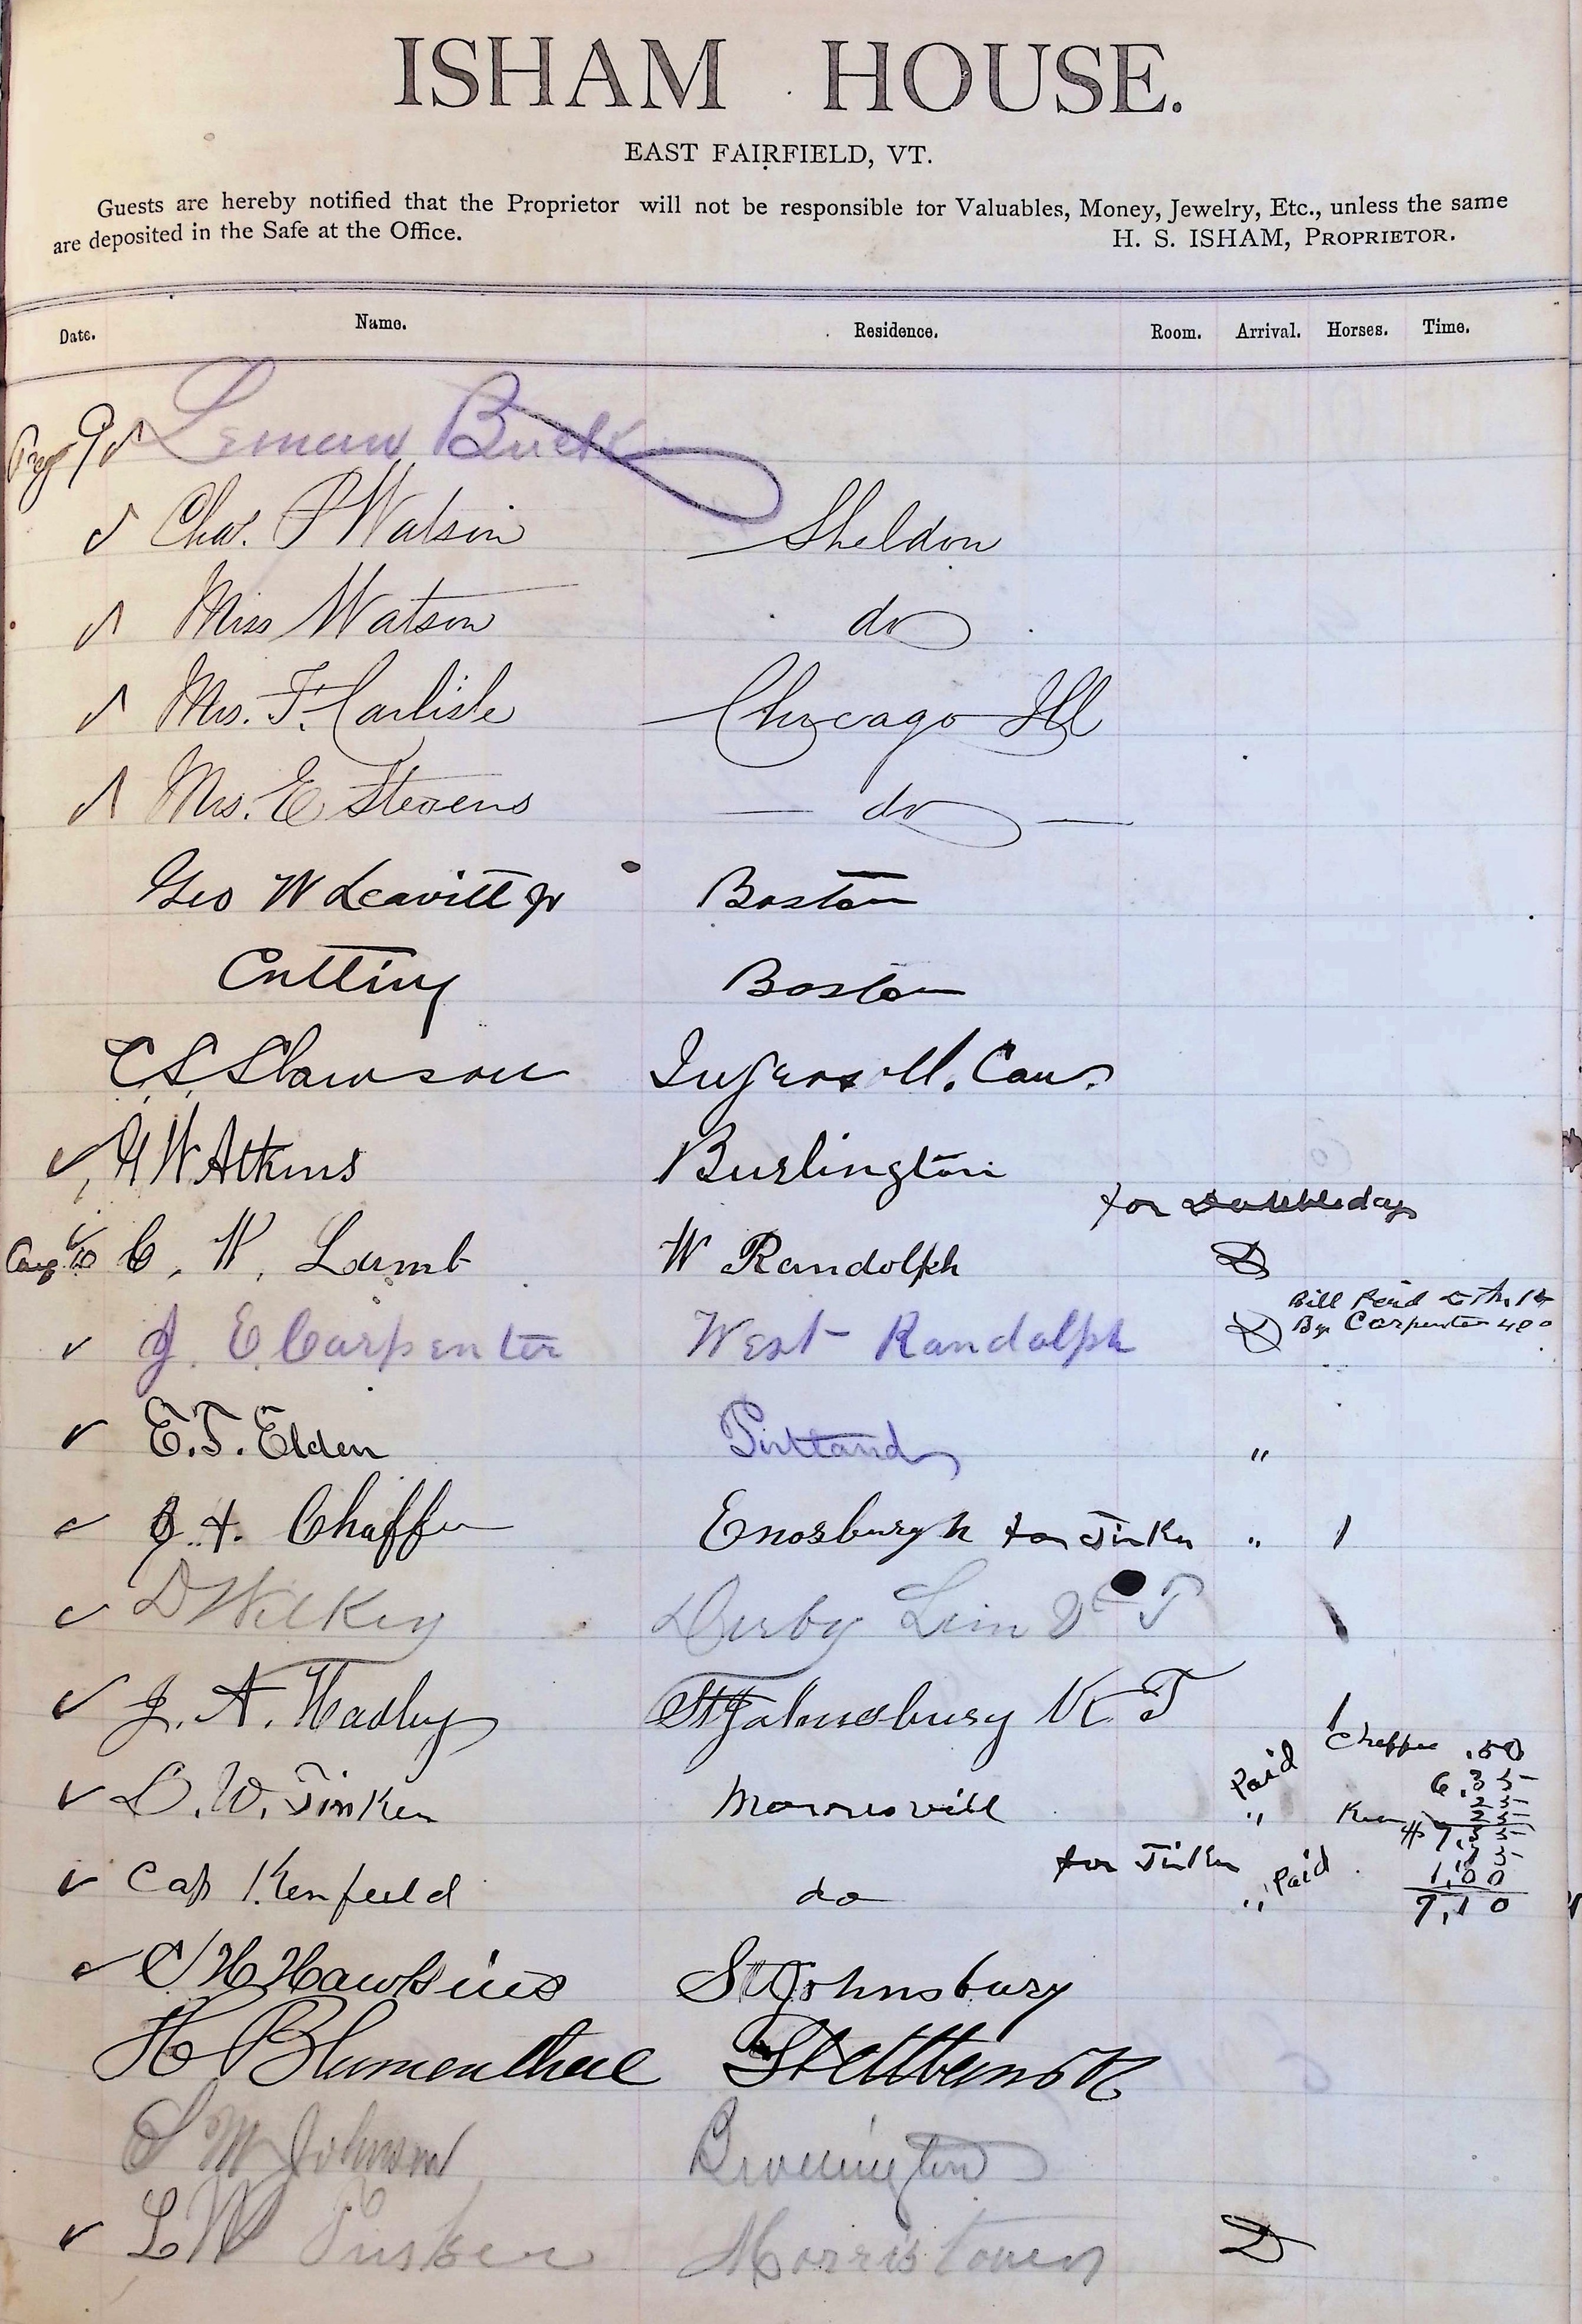 ISHAM HOUSE.
EAST FAIRFIELD, VT.
Guests are hereby notified that the Proprietor will not be responsible for Valuables, Money, Jewelry, Etc., unless the same
are deposited in the Safe at the Office. H. S. ISHAM, PROPRIETOR.
Date. Name. Residence. Room. Arrival. Horses. Time.
Aug 9 Leman Buck
Chas. P Watson Sheldon
Miss Watson do
Mrs. F. Carlisle Chicago Ill
Mrs. E Stevens do
Geo W Leavitt Jr Boston
Cutting Boston
C. S. Slawson Ingersoll. Can.
W Atkins Burlington
for Doubleday
Aug 10 C. W. Lamb W Randolph D
Bill Paid
J. E. Carpenter West Randolph D By Carpenter 400
E. T. Elden Portland "
Chaffee Enosburgh for Tinker " 1
D Wilkey Derby Line V T 1
J. A. Hadley St Johnsbury V T 1
Chaffee .50
D. W. Tinker Morrisvill " Paid 6.35
for Tinker
Cap Kenfield do " Paid 1,00
7,10
C H Hawkins St Johnsbury
H Blumenthal
S M Johnson
L W Morristown D